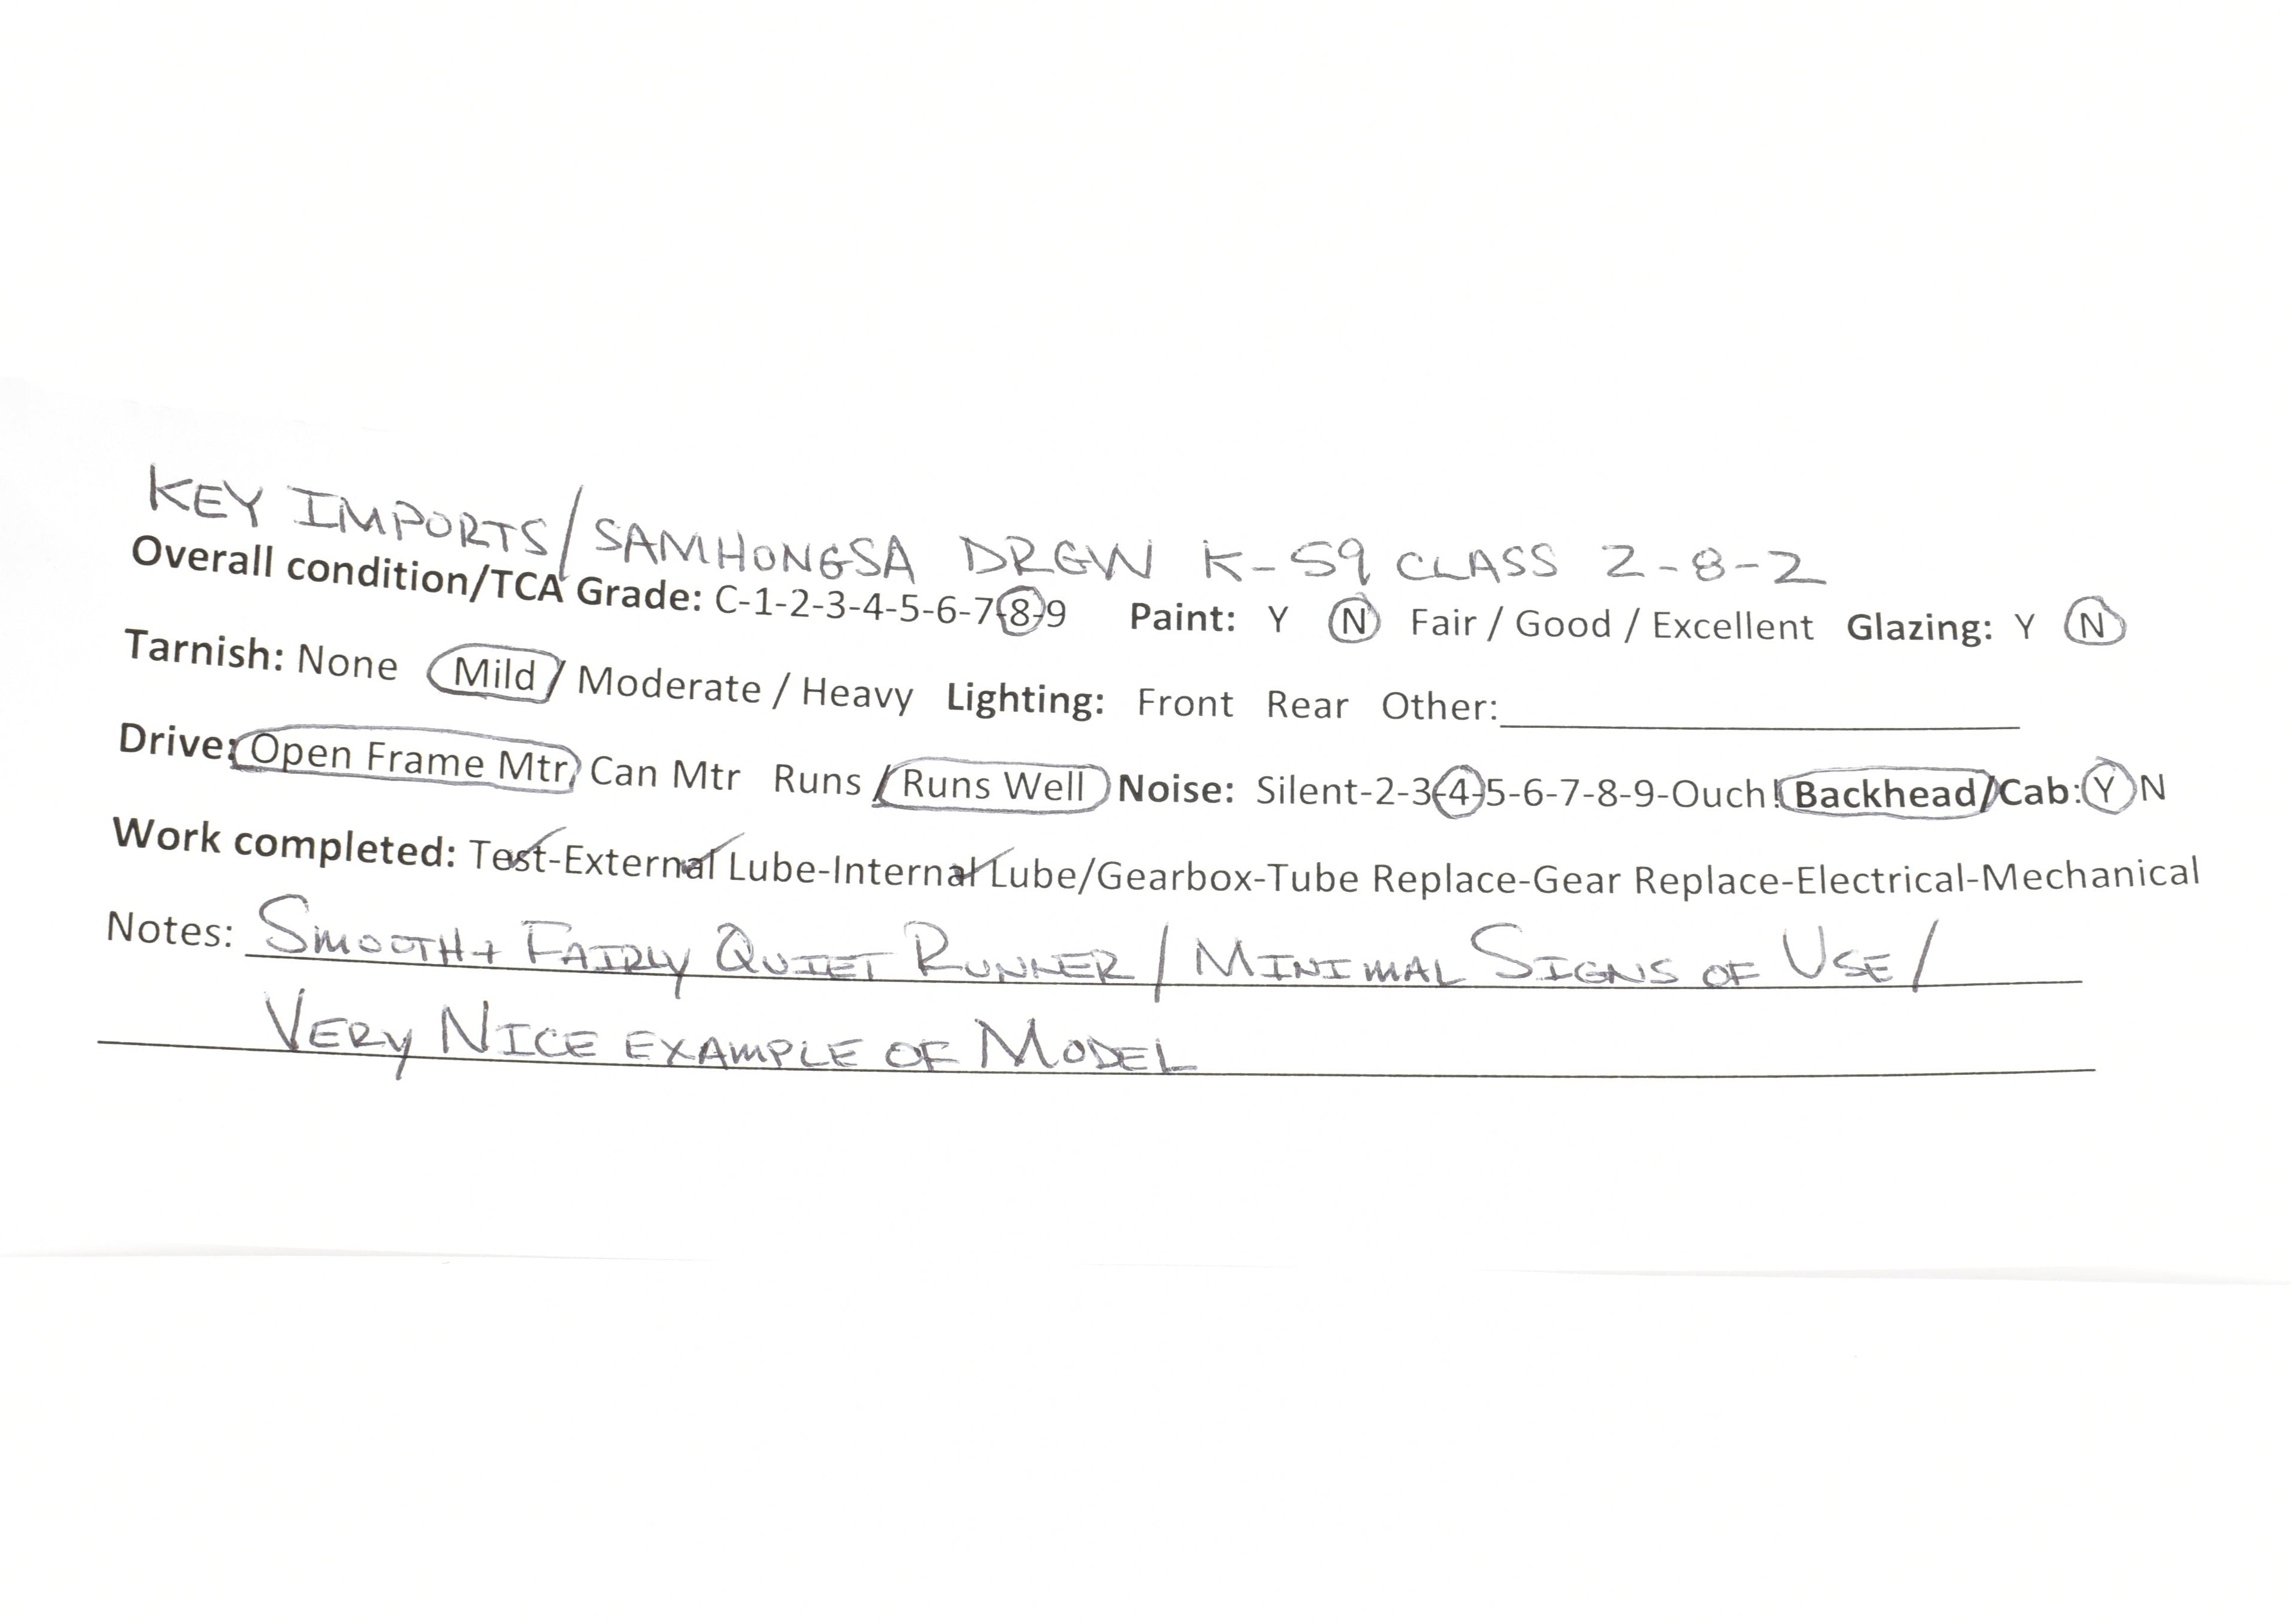 KEY IMPORTS/SAMHONGSA DRGW K-59 CLASS 2-8-2
Overall condition/TCA Grade: C-1-2-3-4-5-6-7-8-9 Paint: Y N Fair / Good / Excellent Glazing: Y N
Tarnish: None Mild / Moderate / Heavy Lighting: Front Rear Other:
Drive: Open Frame Mtr Can Mtr Runs / Runs Well Noise: Silent-2-3-4-5-6-7-8-9-Ouch! Backhead/Cab: Y N
Work completed: Test-External Lube-Internal Lube/Gearbox-Tube Replace-Gear Replace-Electrical-Mechanical
Notes: SMOOTH + FAIRLY QUIET RUNNER / MINIMAL SIGNS OF USE /
VERY NICE EXAMPLE OF MODEL